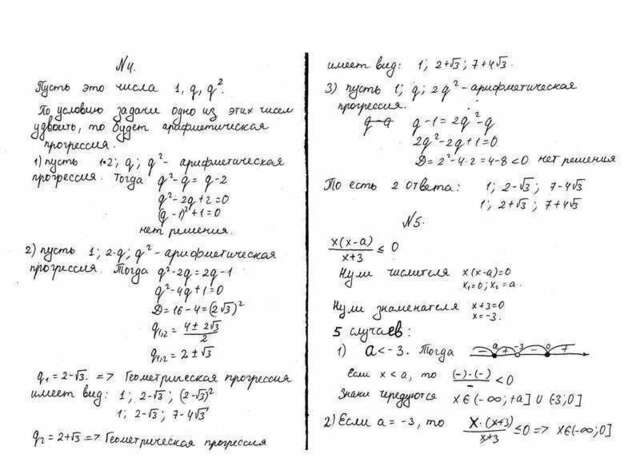 №4.
Пусть это числа 1, q, q².
По условию задачи одно из этих чисел
удвоить, то будет арифметическая
прогрессия.
1) пусть 1·2; q; q² - арифметическая
прогрессия. Тогда q² - q = q - 2
q² - 2q + 2 = 0
(q - 1)² + 1 = 0
нет решения.
2) пусть 1; 2·q; q² - арифметическая
прогрессия. Тогда q² - 2q = 2q - 1
q² - 4q + 1 = 0
D = 16 - 4 = (2√3)²
q₁,₂ = (4 ± 2√3)/2
q₁,₂ = 2 ± √3
q₁ = 2 - √3. => Геометрическая прогрессия
имеет вид: 1; 2-√3; (2-√3)²
1; 2-√3; 7-4√3
q₂ = 2+√3 => Геометрическая прогрессия
имеет вид: 1; 2+√3; 7+4√3.
3) пусть 1; q; 2q² - арифметическая
прогрессия.
q - 1 = 2q² - q
2q² - 2q + 1 = 0
D = 2² - 4·2 = 4 - 8 < 0 нет решения
То есть 2 ответа: 1; 2-√3; 7-4√3
1; 2+√3; 7+4√3
№5.
x(x-a)/(x+3) ≤ 0
Нули числителя x(x-a)=0
x₁=0; x₂=a.
Нули знаменателя x+3=0
x=-3.
5 случаев:
1) a < -3. Тогда - a + -3 - 0 +
Если x < a, то (-)·(-)/- < 0
Знаки чередуются x∈(-∞;+a] ∪ (-3;0]
2) Если a = -3, то x·(x+3)/(x+3) ≤ 0 => x∈(-∞;0]